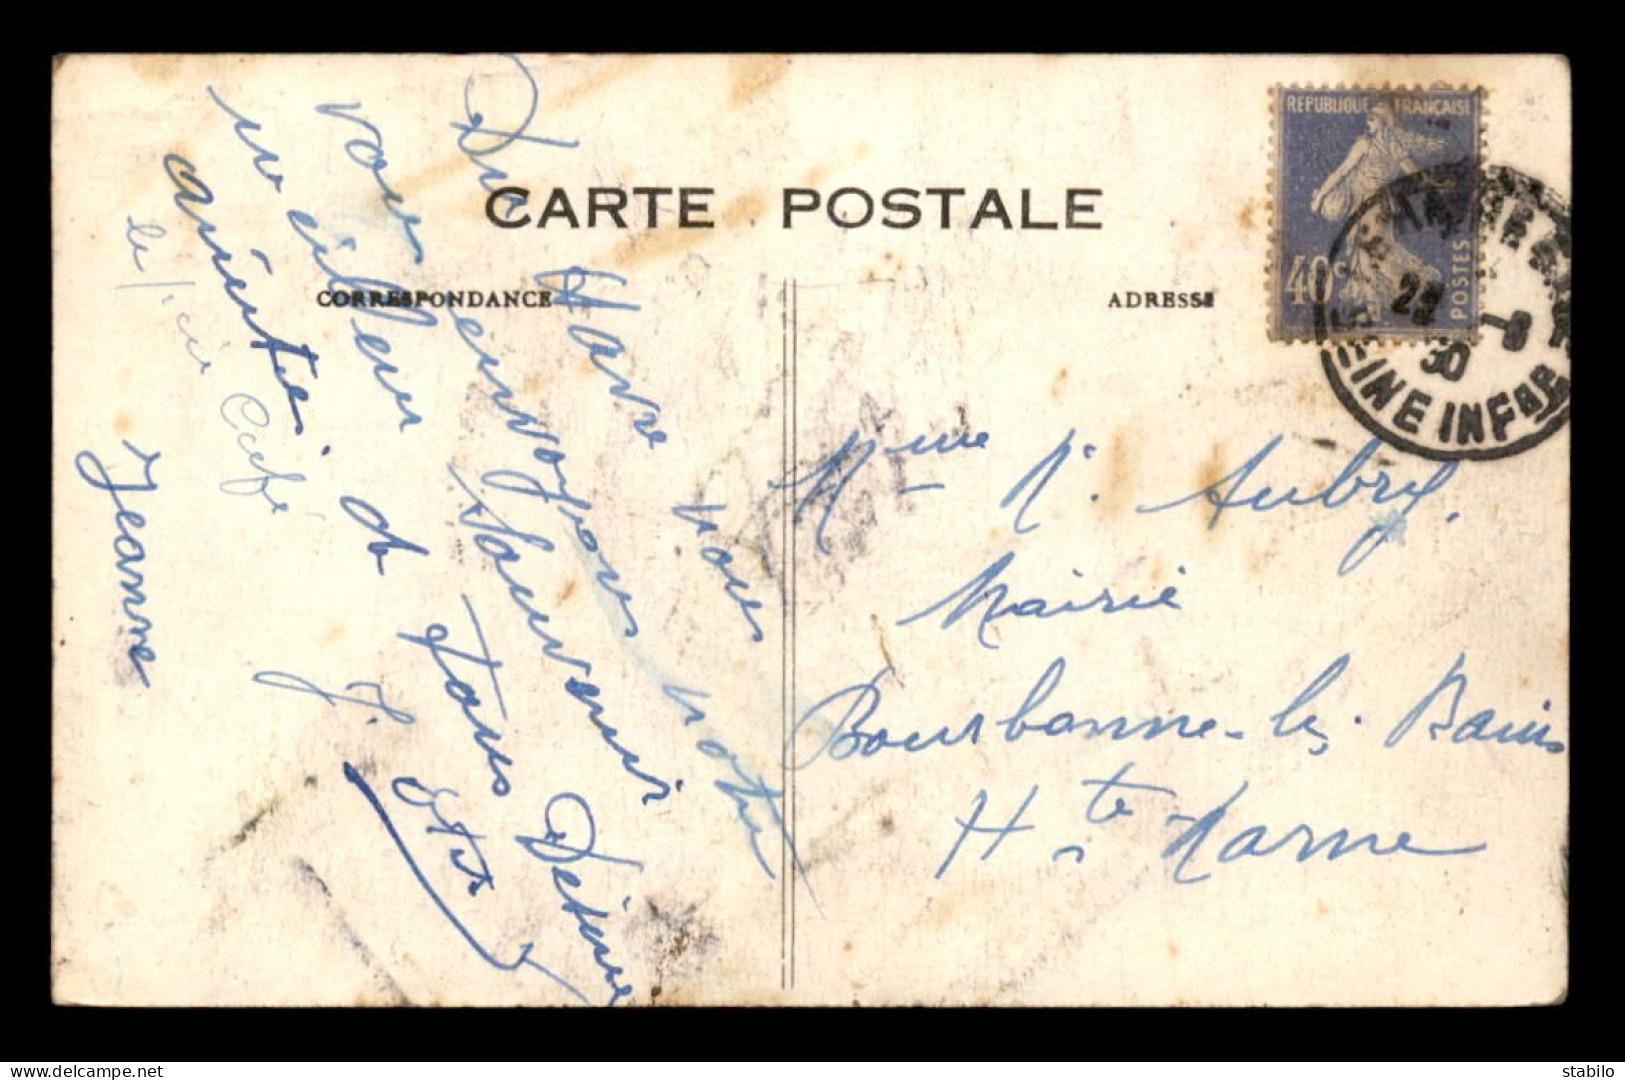 CARTE POSTALE
CORRESPONDANCE
ADRESSE
REPUBLIQUE FRANÇAISE
40c
POSTES
28 -8
30
SEINE INFRE
Du Havre nous
vous envoyons notre
meilleur souvenir
amitiés. à tous
J.
Jeanne
Mme N. Aubry.
Mairie
Bourbonne-les Bains
Hte Marne
delcampe.net
stabilo